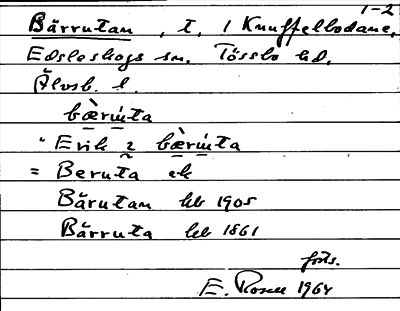 1-2
Bärrutan, t. / Knuffelbodane,
Edsleskogs sn. Tössbo hd.
Älvsb. l.
bæ̀rùta
" Erik i bæ̀rùta
= Beruta ek
Bärutan kb 1905
Bärruta kb 1861
forts.
E. Rosell 1964